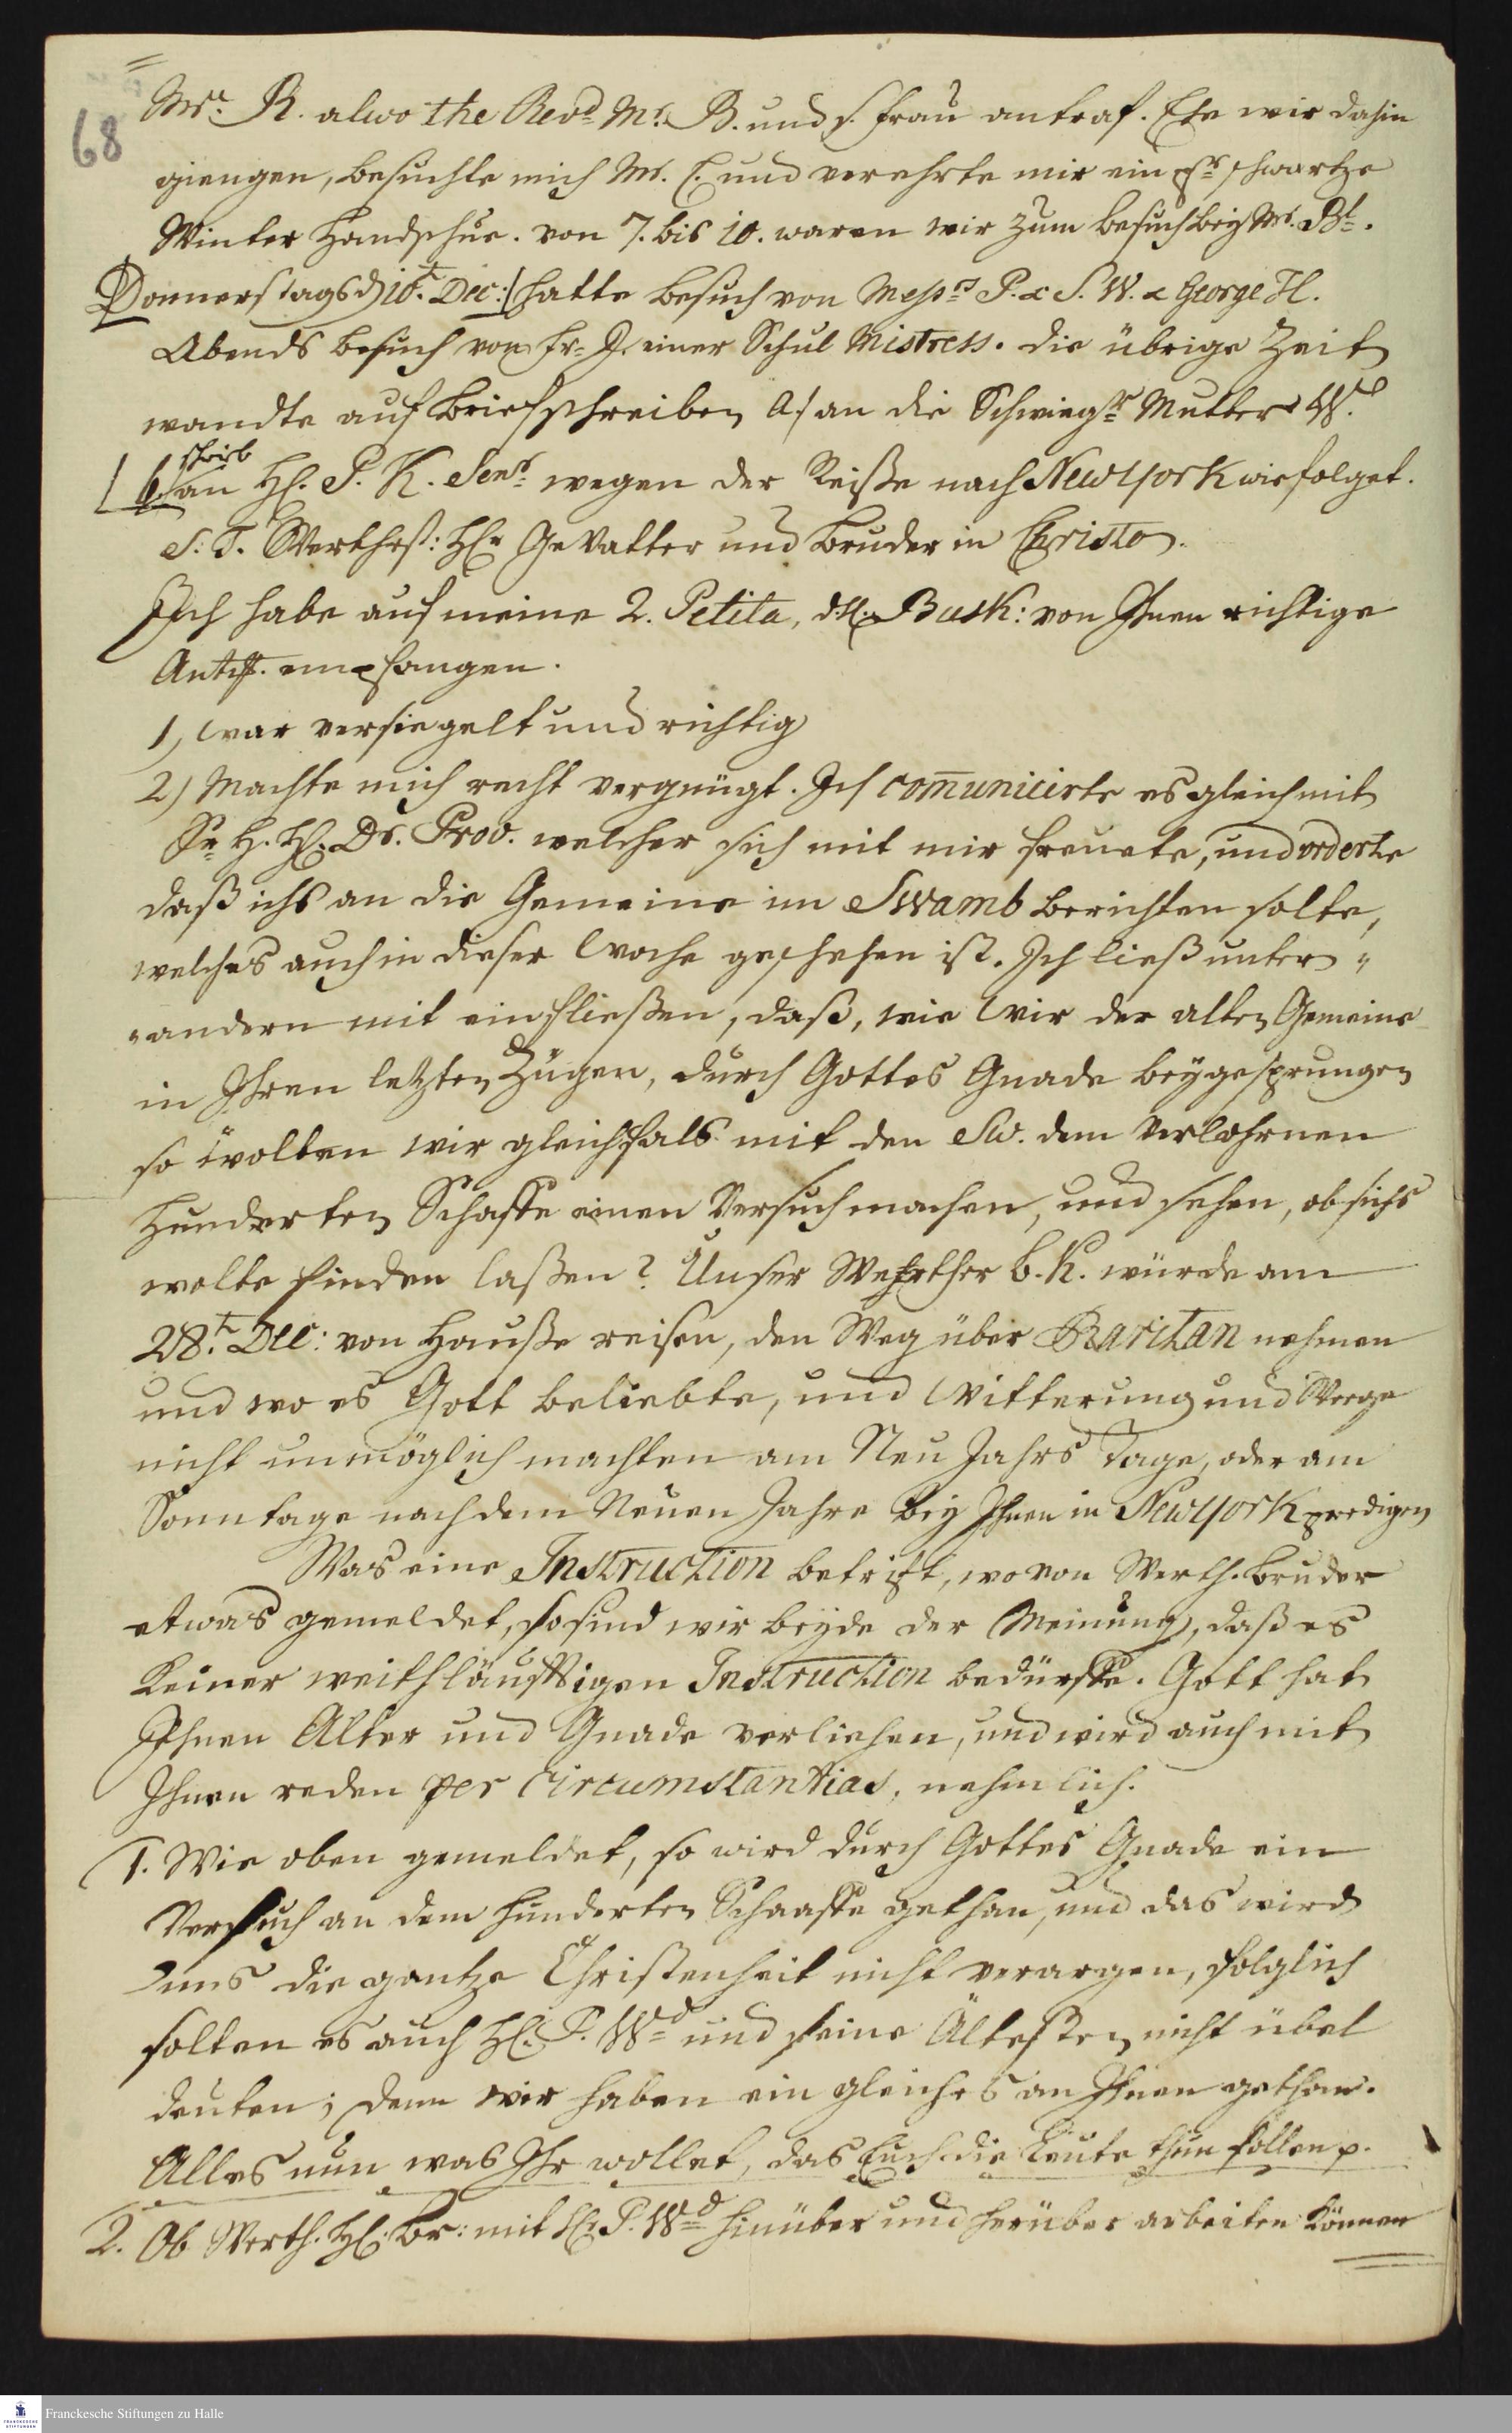 68
Mr. R. alwo the Revd Mr. B. und s. Frau antraf. Ehe wir dahin
giengen, besuchte mich Mr. C. und verehrte mir ein pr schwartze
Winter Handschue. von 7. bis 10. waren wir zum besuch bey Mr. Bl.
Donnerstags d 10t. Dec: hatte besuch von Messrs P. & S. W. & George H.
Abends besuch von Fr. D. einer Schul Mistress. die übrige Zeit
wandte auf briefschreiben a/ an die Schwiegr Mutter W.
schrieb
b/ an H. P. K. Senr. wegen der Reiße nach Newyork wie folget.
S. T. Werthest: Hr Gevatter und bruder in Christo.
Ich habe auf meine 2. Petita, Busk: von Ihnen richtige
Antw. empfangen.
1, war versiegelt und richtig
2) Machte mich recht vergnügt. Ich comunicirte es gleich mit
Sr H. H. Dr. Prov. welcher sich mit mir freuete, und orderte
daß ichs an die Gemeine im Swamb berichten solte,
welches auch in dieser Woche geschehen ist. Ich ließ unter
andern mit einfließen, daß, wie wir der alten Gemeine
in Ihren letzten Zügen, durch Gottes Gnade beygesprungen
so wolten wir gleichfals mit den Sw. dem Verlohrnen
Hunderten Schaffe einen Versuch machen, und sehen, ob sichs
wolte finden laßen? Unser Wehrther b. K. würde am
28t. Dec: von Hauße reisen, den Weg über Raritan nehmen
und wo es Gott beliebte, und Witterung und Weege
nicht unmöglich machten am Neu Jahrs Tage, oder am
Sonntage nach dem Neuen Jahre bey Ihnen in Newyork predigen
Was eine Instruction betrift, wovon Werth. bruder
etwas gemeldet, so sind wir beyde der Meinung, daß es
keiner weithläufftigen Instruction bedürffe. Gott hat
Ihnen Alter und Gnade verliehen, und wird auch mit
Ihnen reden per Circumstantias, nehmlich.
1. Wie oben gemeldet, so wird durch Gottes Gnade ein
Versuch an dem hunderten Schaaffe gethan, und das wird
uns die gantze Christenheit nicht verargen, folglich
solten es auch H. P. Wd und seine Ältesten nicht übel
deuten; denn wir haben ein gleiches an Ihnen gethan.
Alles nun was Ihr wollet, das Euch die Leute thun sollen p.
2. Ob Werth. H. Br: mit H. P. Wd hinüber und herüber arbeiten können
Franckesche Stiftungen zu Halle